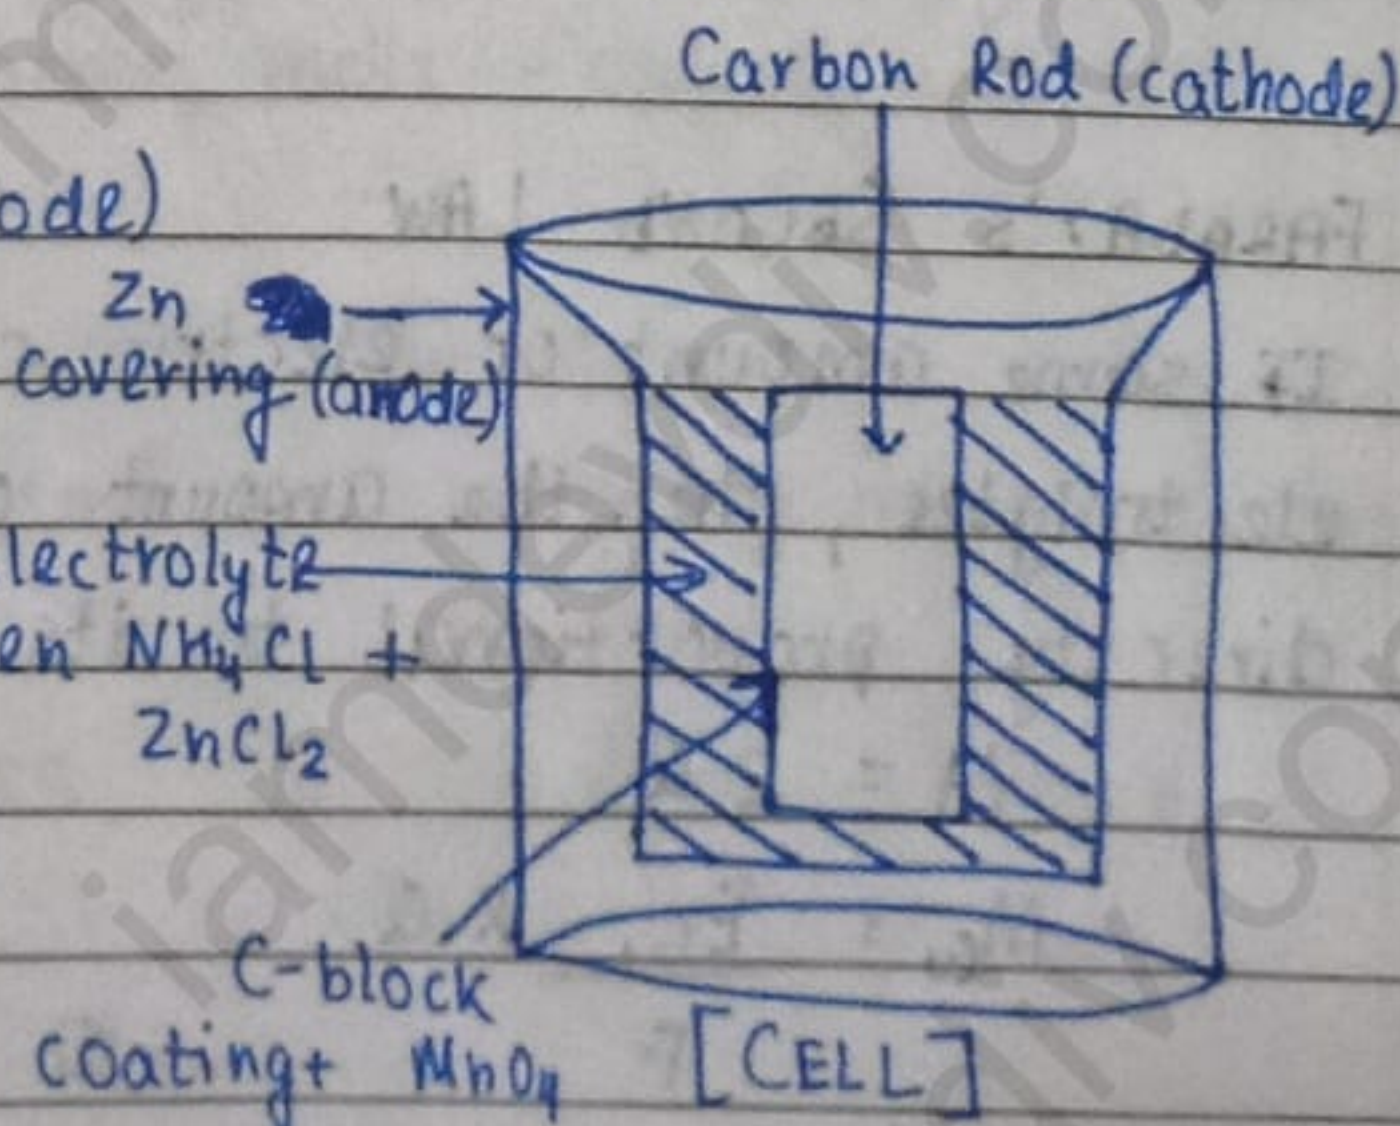 Carbon Rod (cathode)
ode)
Zn
covering (anode)
lectrolyte
en NH4Cl +
ZnCl2
C-block
coating+ MnO4
[CELL]